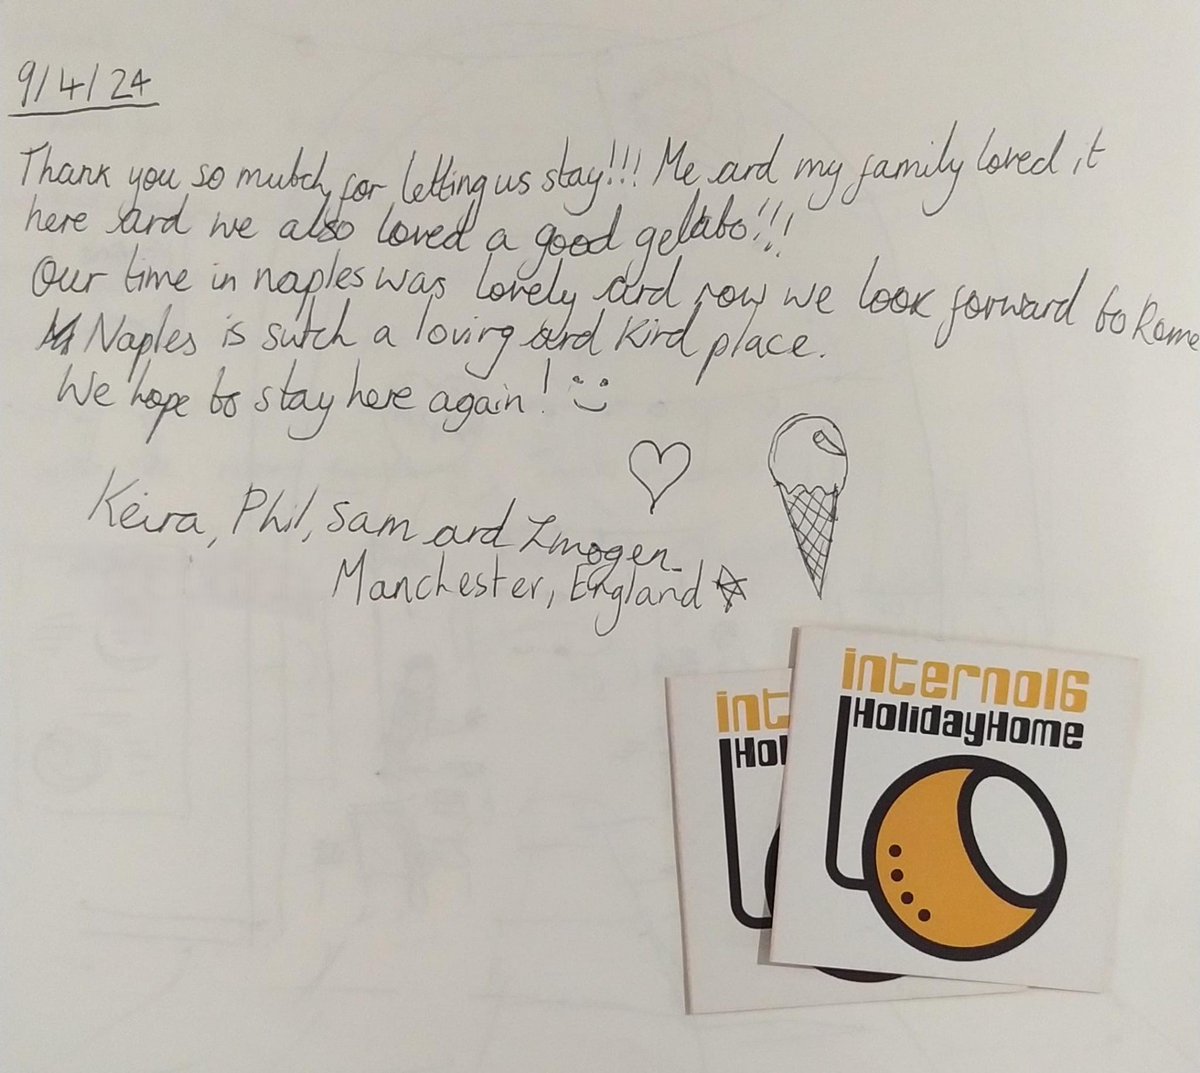 9/4/24
Thank you so mutch for letting us stay!!! Me and my family loved it
here and we also loved a good gelato!!!
Our time in naples was lovely and now we look forward to Rome
Naples is sutch a loving and kind place.
We hope to stay here again! :)
Keira, Phil, Sam and Imogen
Manchester, England
interno16
HolidayHome
int
Hol